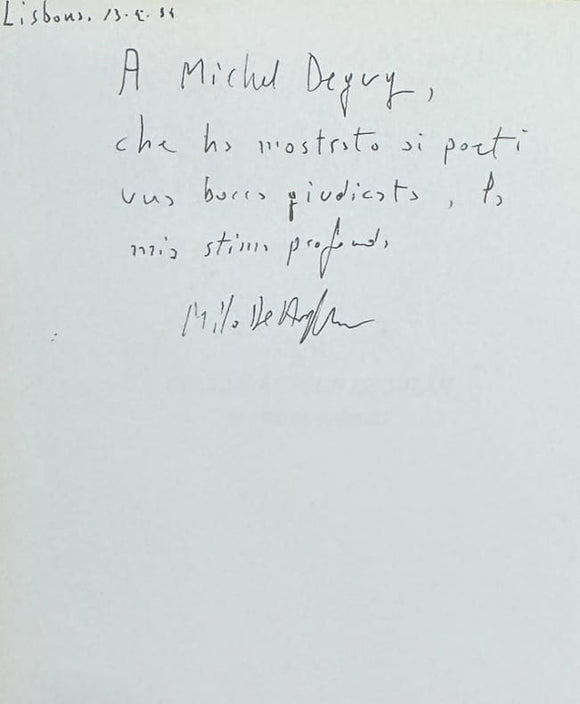 Lisbona, 13.
A Michel Deguy,
che ha mostrato ai poeti
una bocca giudicata, la
mia stima profonda
Milo De Angelis